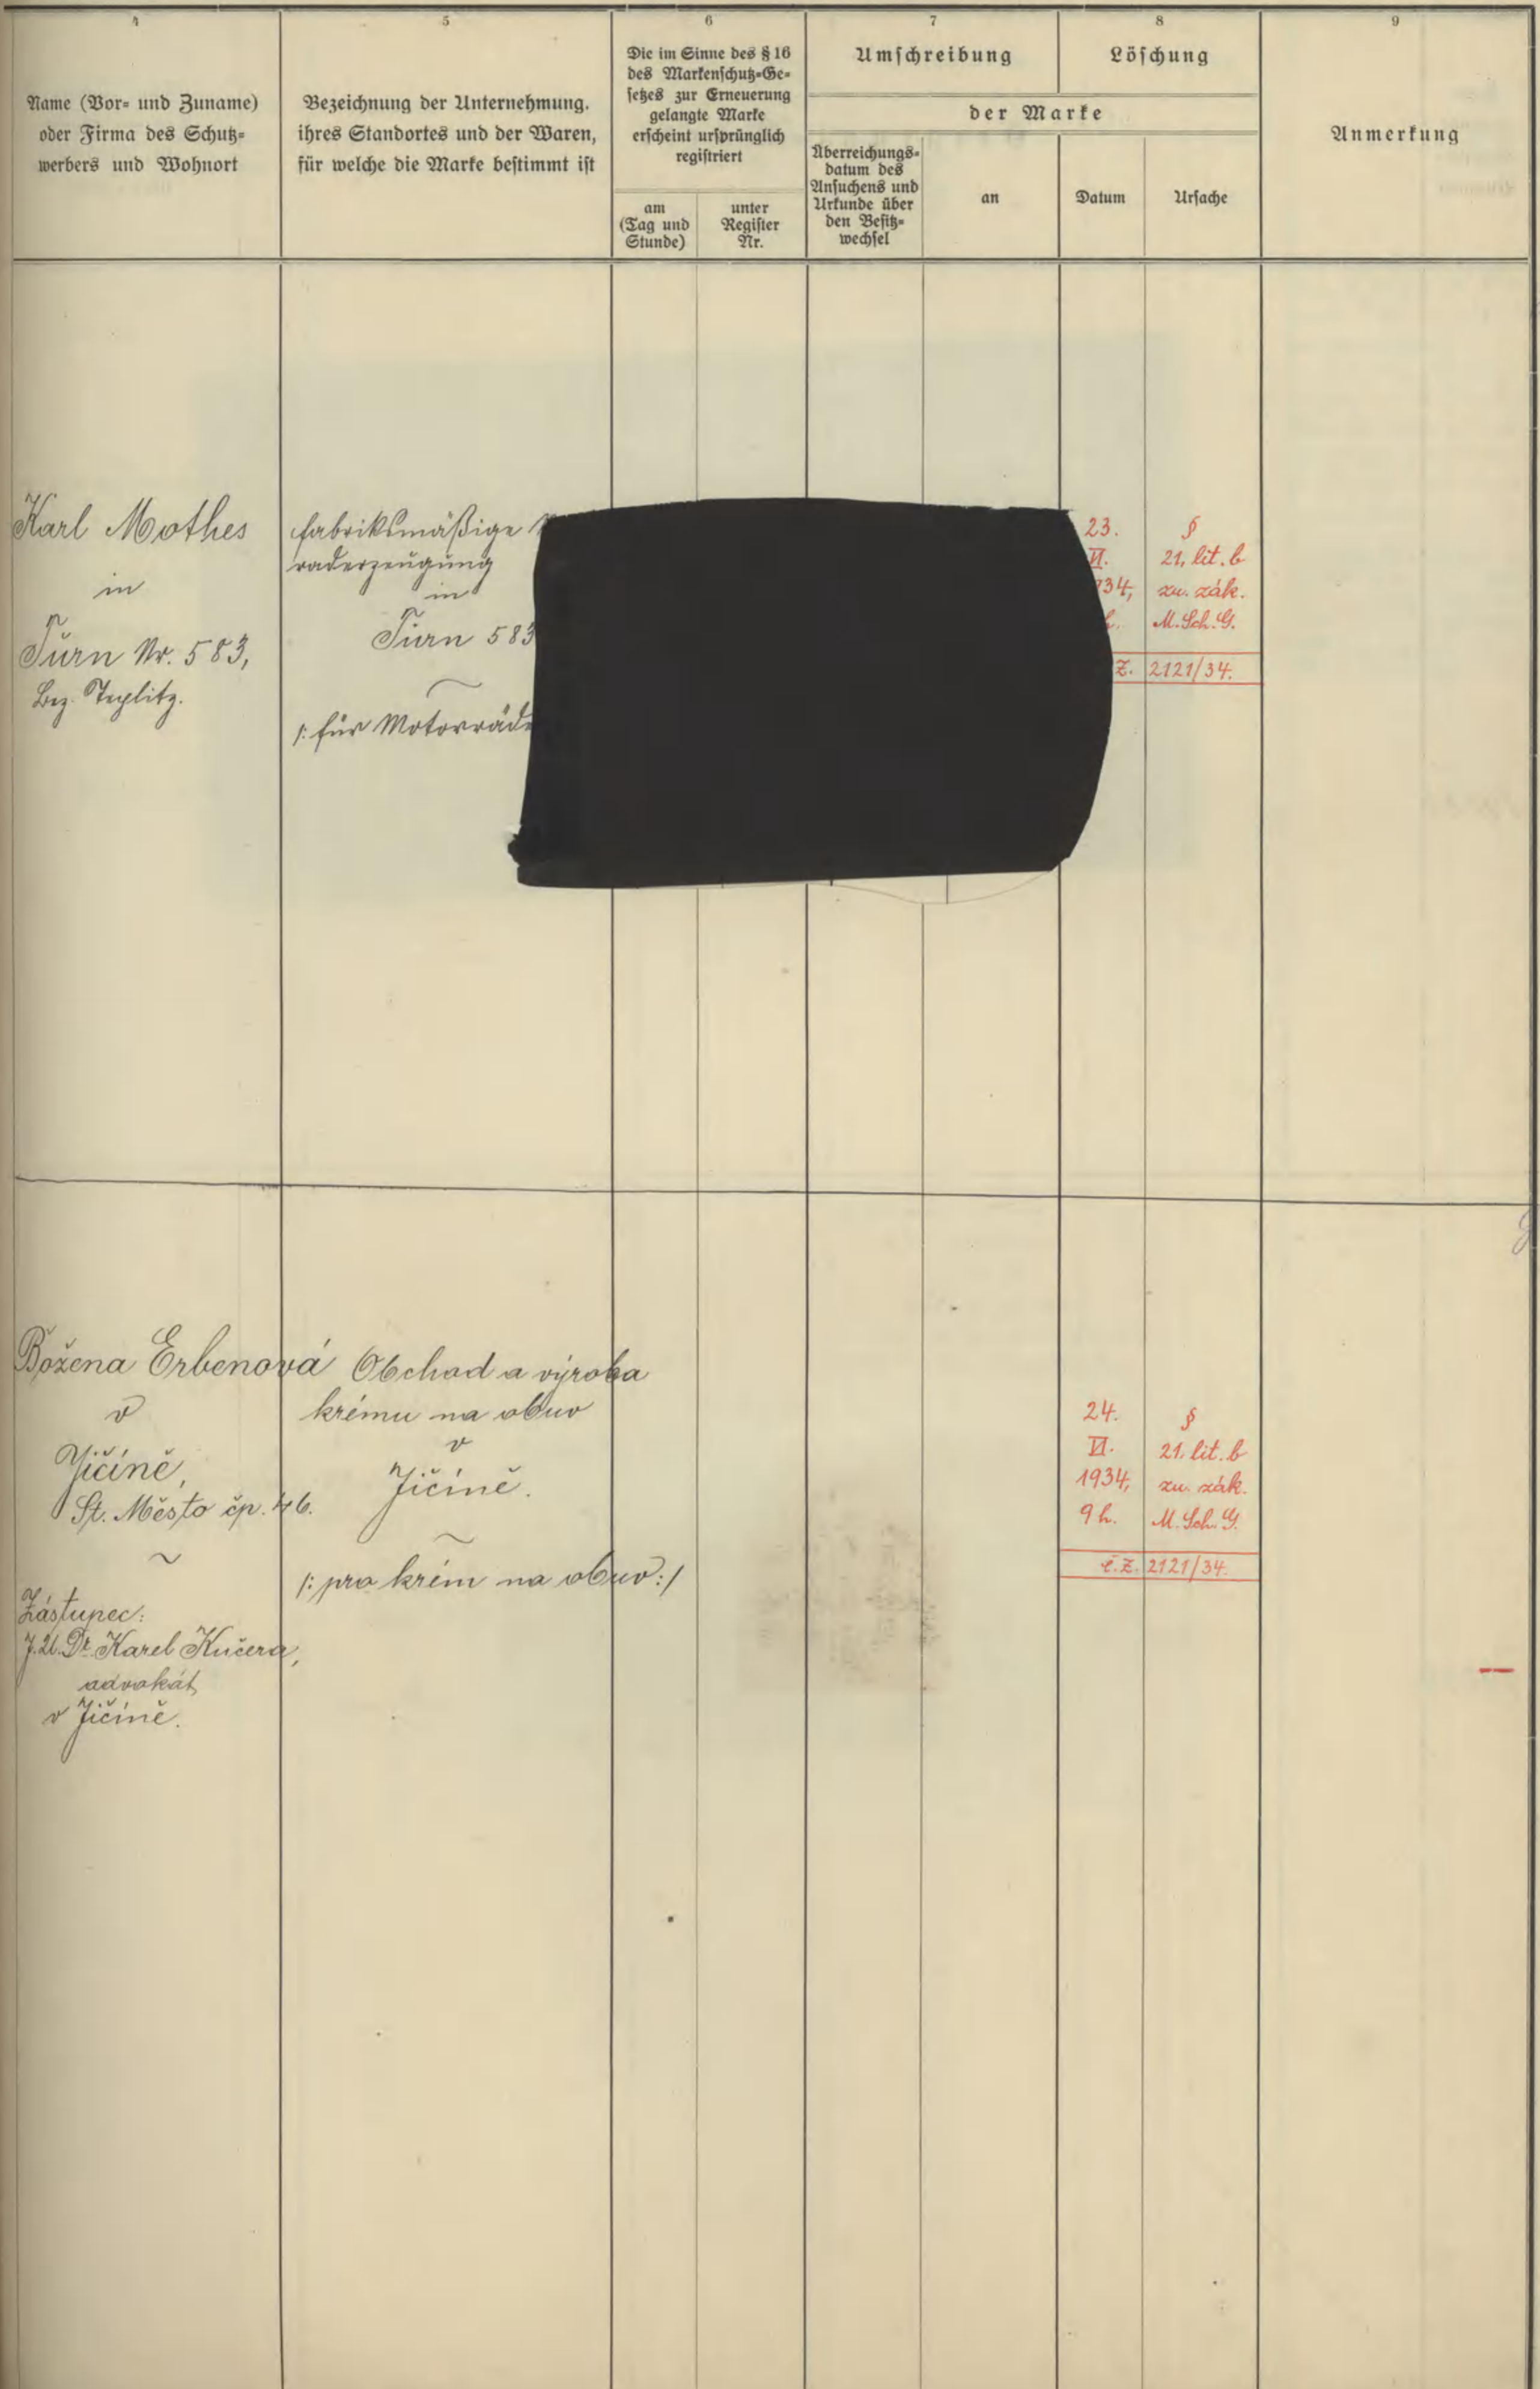 4
Name (Vor- und Zuname)
oder Firma des Schutz-
werbers und Wohnort
5
Bezeichnung der Unternehmung.
ihres Standortes und der Waren,
für welche die Marke bestimmt ist
6
Die im Sinne des § 16
des Markenschutz-Ge-
setzes zur Erneuerung
gelangte Marke
erscheint ursprünglich
registriert
am
(Tag und
Stunde)
unter
Register
Nr.
7
Umschreibung
8
Löschung
der Marke
Überreichungs-
datum des
Ansuchens und
Urkunde über
den Besitz-
wechsel
an
Datum
Ursache
9
Anmerkung
Karl Mothes
in
Turn Nr. 583,
Bez. Teplitz.
fabriksmäßige
raderzeugung
in
Turn 583
/: für Motorräde
23.
VI.
34,
h.
§
21. lit. b
zn. zák.
M. Sch. G.
Z. 2121/34.
Božena Erbenová
v
Jičíně,
St. Město čp. 46.
Zástupec:
J. U. Dr. Karel Kučera,
advokát
v Jičíně.
Obchod a výroba
krému na obuv
v
Jičíně.
/: pro krém na obuv :/
24.
VI.
1934,
9 h.
§
21. lit. b
zn. zák.
M. Sch. G.
č. Z. 2121/34.